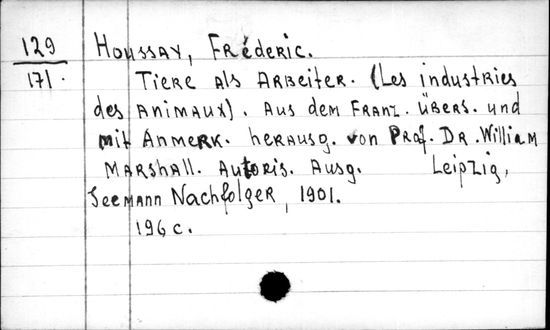 129 Houssay, Fréderic.
171. Tiere als Arbeiter. (Les industries
des animaux). Aus dem Franz. übers. und
mit Anmerk. herausg. von Prof. Dr. William
Marshall. Autoris. Ausg. Leipzig,
Seemann Nachfolger, 1901.
196 c.